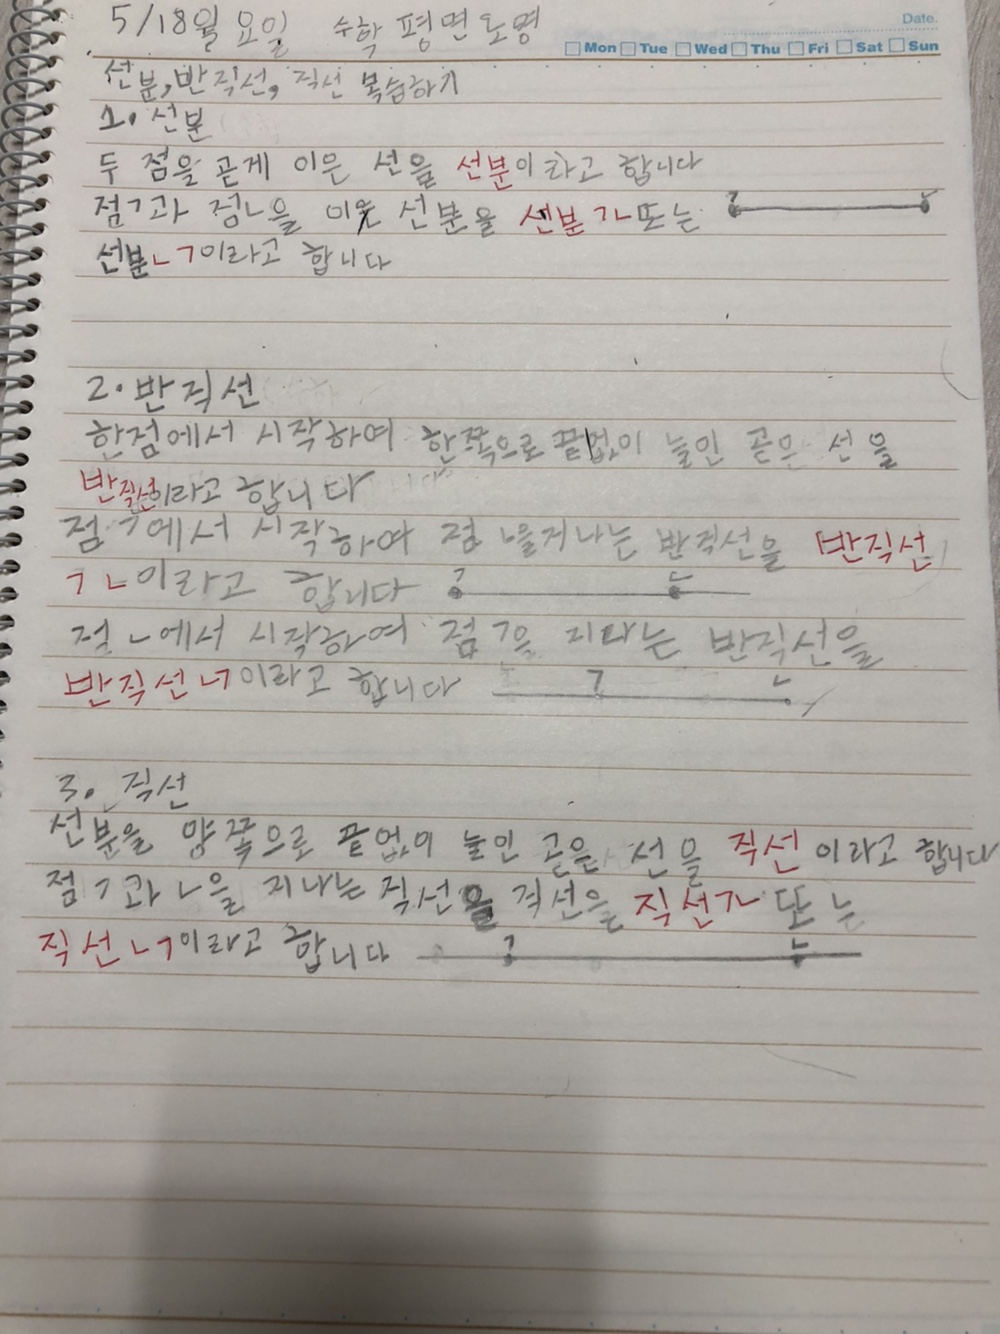 5/18월 요일 수학 평면도형
Date.
Mon Tue Wed Thu Fri Sat Sun
선분, 반직선, 직선 복습하기
1. 선분
두 점을 곧게 이은 선을 선분이라고 합니다
점ㄱ과 점ㄴ을 이은 선분을 선분 ㄱㄴ또는
ㄱ ㄴ
선분ㄴㄱ이라고 합니다
2. 반직선
한점에서 시작하여 한쪽으로 끝없이 늘인 곧은 선을
반직선이라고 합니다
점 ㄱ에서 시작하여 점 ㄴ을지나는 반직선을 반직선
ㄱㄴ이라고 합니다 ㄱ ㄴ
점 ㄴ에서 시작하여 점 ㄱ을 지나는 반직선을
반직선ㄴㄱ이라고 합니다 ㄱ ㄴ
3. 직선
선분을 양쪽으로 끝없이 늘인 곧은 선을 직선이라고 합니다
점ㄱ과 ㄴ을 지나는 직선을 직선을 직선ㄱㄴ 또는
직선ㄴㄱ이라고 합니다 ㄱ ㄴ